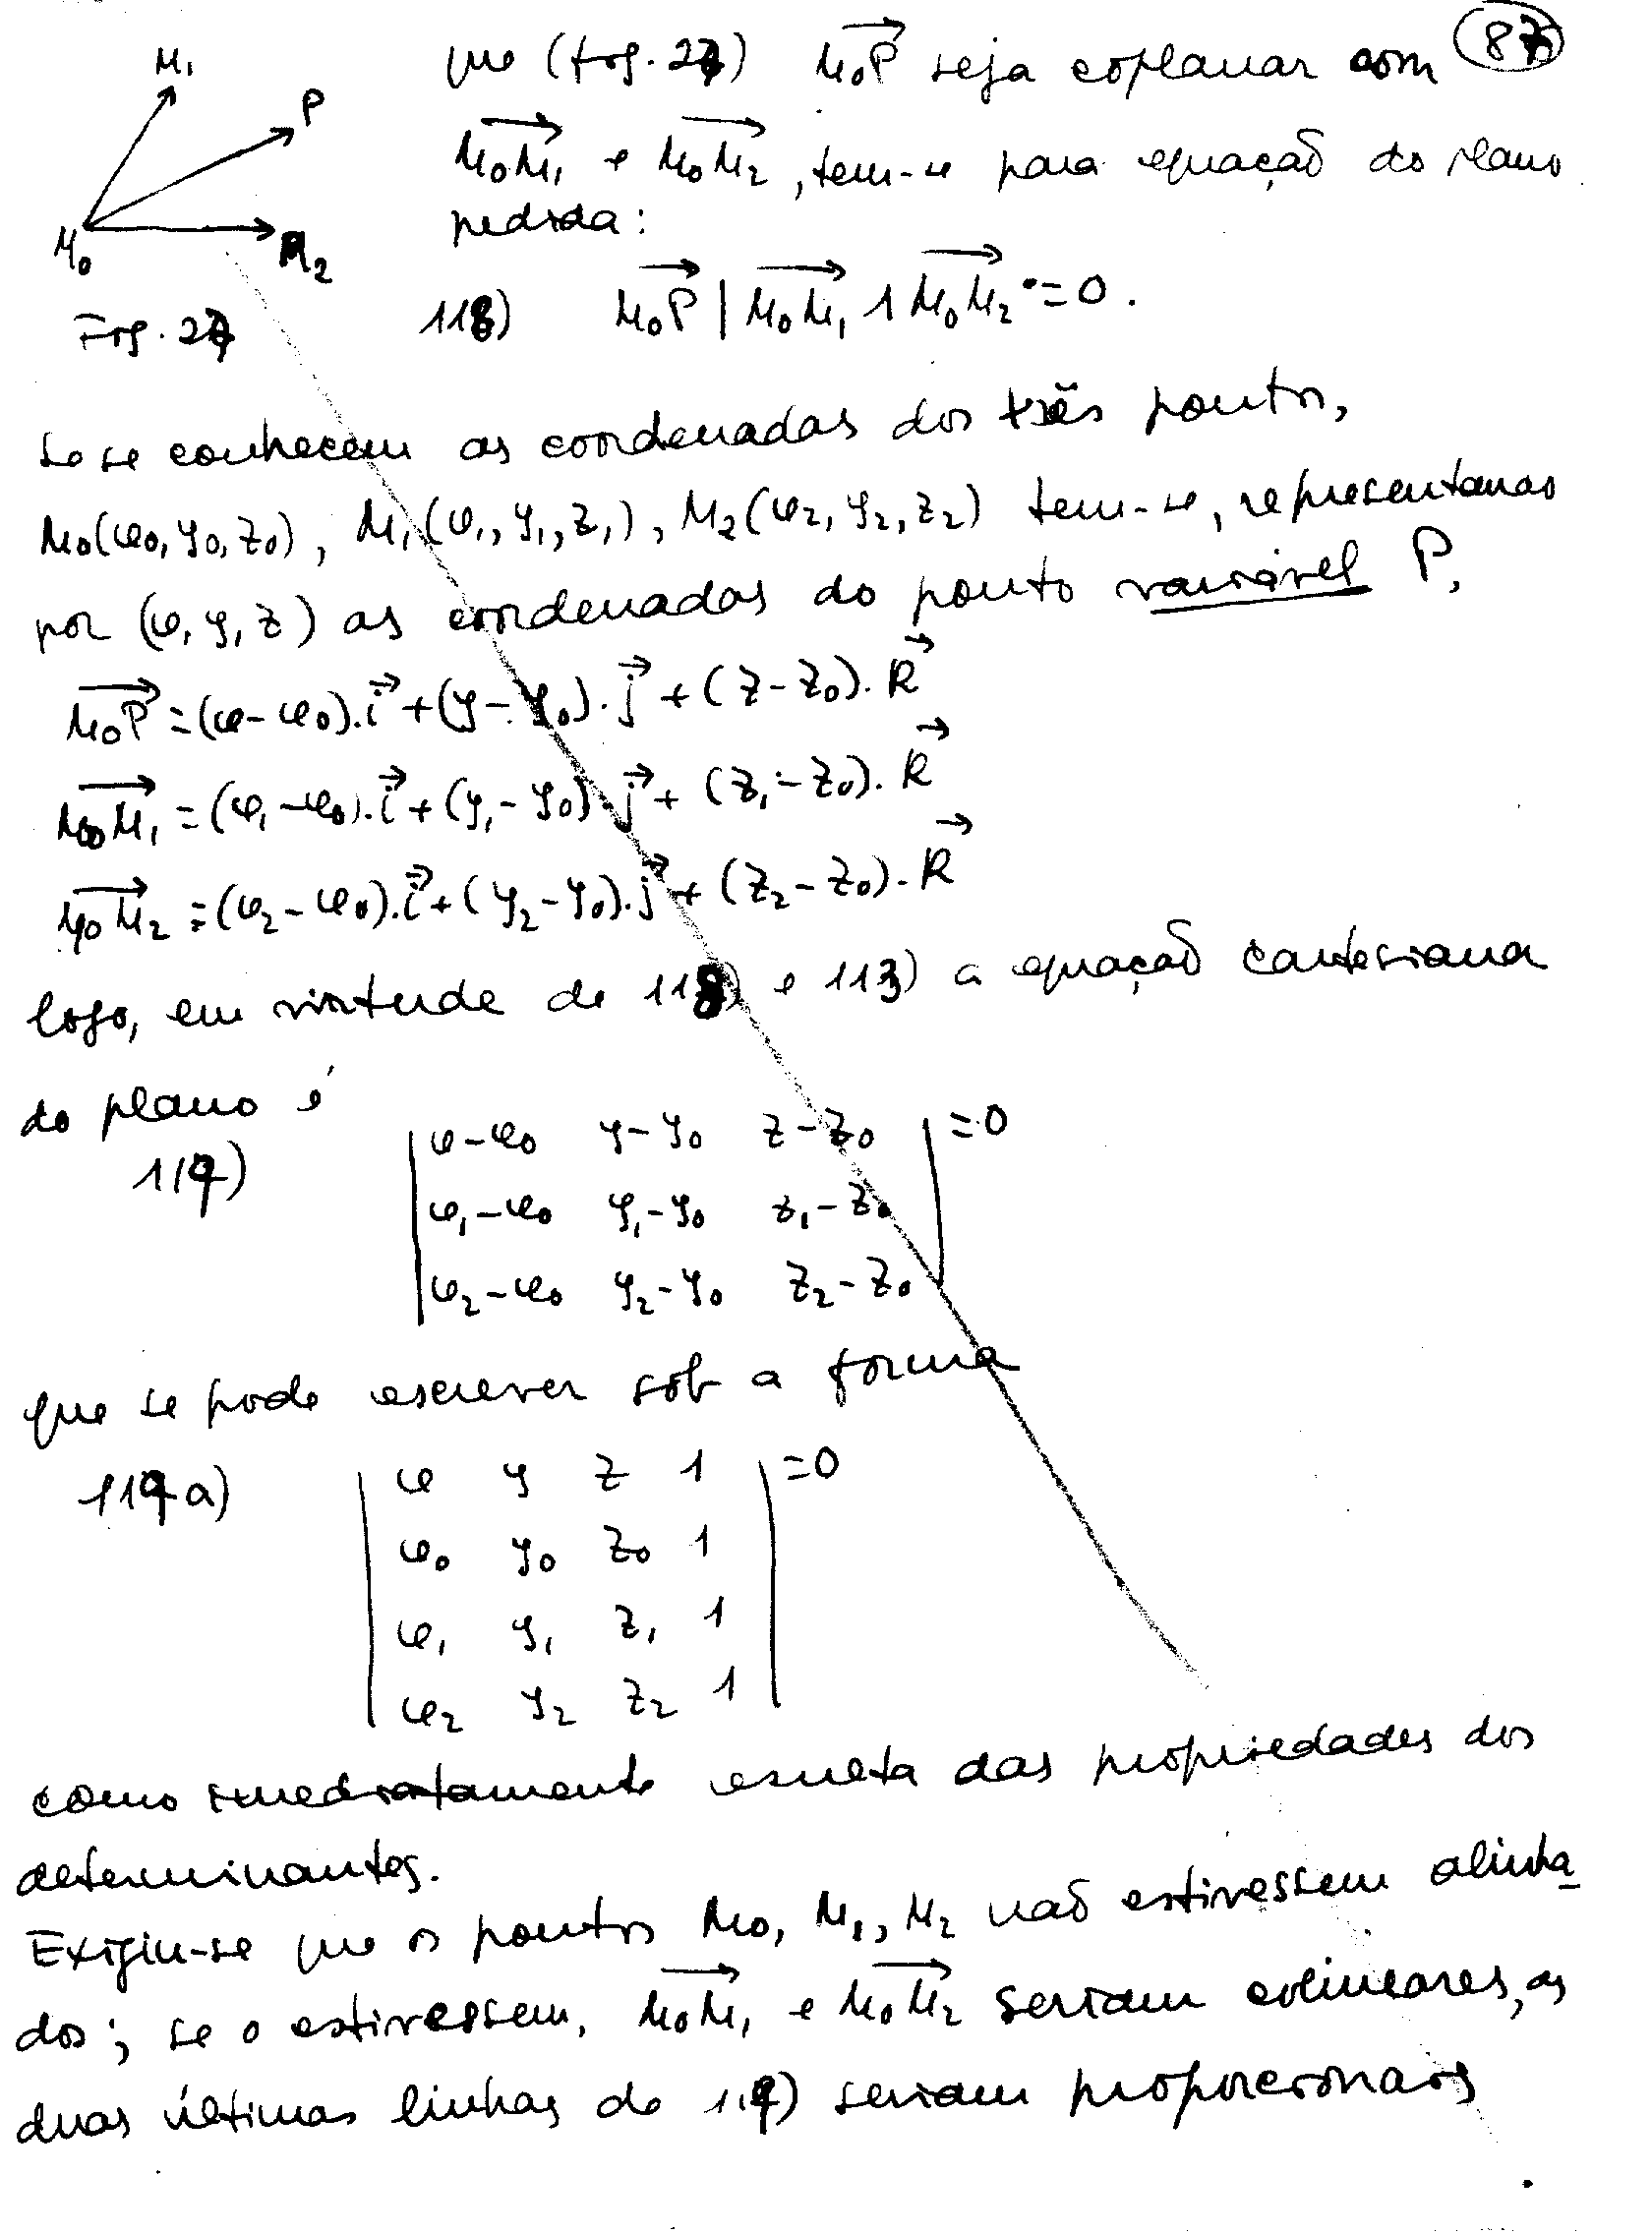 87
que (Fig. 27) M₀P seja coplanar com
M₀M₁ e M₀M₂, tem-se para equação do plano
pedida:
M₁
P
M₀
M₂
Fig. 27
118) M₀P | M₀M₁ ∧ M₀M₂ = 0.
Se se conhecem as coordenadas dos três pontos,
M₀(x₀, y₀, z₀), M₁(x₁, y₁, z₁), M₂(x₂, y₂, z₂) tem-se, representando
por (x, y, z) as coordenadas do ponto variável P,
M₀P = (x-x₀).i + (y-y₀).j + (z-z₀).k
M₀M₁ = (x₁-x₀).i + (y₁-y₀).j + (z₁-z₀).k
M₀M₂ = (x₂-x₀).i + (y₂-y₀).j + (z₂-z₀).k
logo, em virtude de 118) e 113) a equação cartesiana
do plano é
119)
| x-x₀ y-y₀ z-z₀ | = 0
| x₁-x₀ y₁-y₀ z₁-z₀ |
| x₂-x₀ y₂-y₀ z₂-z₀ |
que se pode escrever sob a forma
119a)
| x y z 1 | = 0
| x₀ y₀ z₀ 1 |
| x₁ y₁ z₁ 1 |
| x₂ y₂ z₂ 1 |
como imediatamente resulta das propriedades dos
determinantes.
Exigiu-se que os pontos M₀, M₁, M₂ não estivessem alinha-
dos; se o estivessem, M₀M₁ e M₀M₂ seriam colineares, as
duas últimas linhas de 119) seriam proporcionais